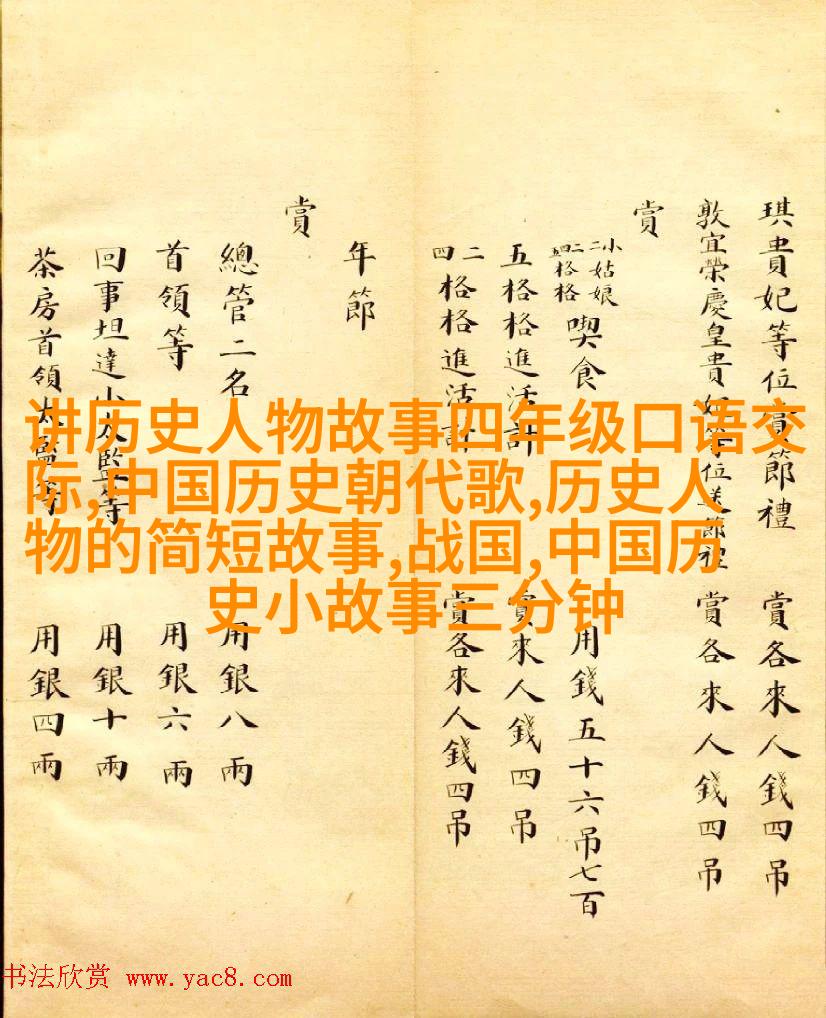 琪貴妃等位賞節禮 賞各來人錢四吊
敦宜榮慶皇貴妃等位送節禮 賞各來人錢四吊
賞
小姑娘
二格格
四格格
喫食 用錢五十六吊七百
五格格進活計 賞來人錢四吊
二四格格進活計 賞各來人錢四吊
年節
賞
總管二名 用銀八兩
首領等 用銀六兩
回事坦達小太監等 用銀十兩
茶房首領太監等 用銀四兩
讲历史人物故事四年级口语交
际,中国历史朝代歌,历史人
物的简短故事,战国,中国历
史小故事三分钟
书法欣赏 www.yac8.com